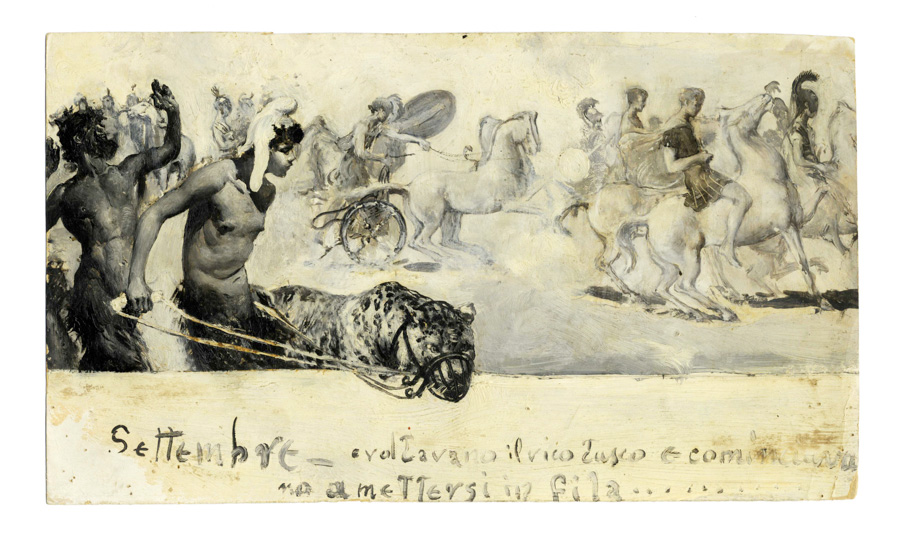 Settembre_ evoltavano il vico Tusco e comincıava
no a mettersi in fila............